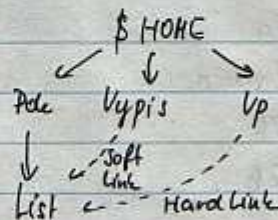 $ HOME
Pole Vypis Vp
Soft
Link
List Hard Link